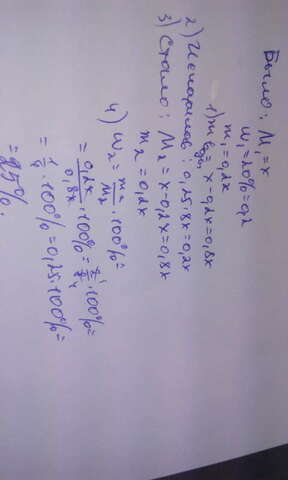 Было: M₁ = x
W₁ = 20% = 0,2
m₁ = 0,2x
1) m воды = x - 0,2x = 0,8x
2) Испарилось: 0,25·0,8x = 0,2x
3) Стало: M₂ = x - 0,2x = 0,8x
m₂ = 0,2x
4) W₂ = m₂/M₂ · 100% =
= 0,2x/0,8x · 100% = 2/8 · 100% =
= 1/4 · 100% = 0,25·100% =
= 25%.